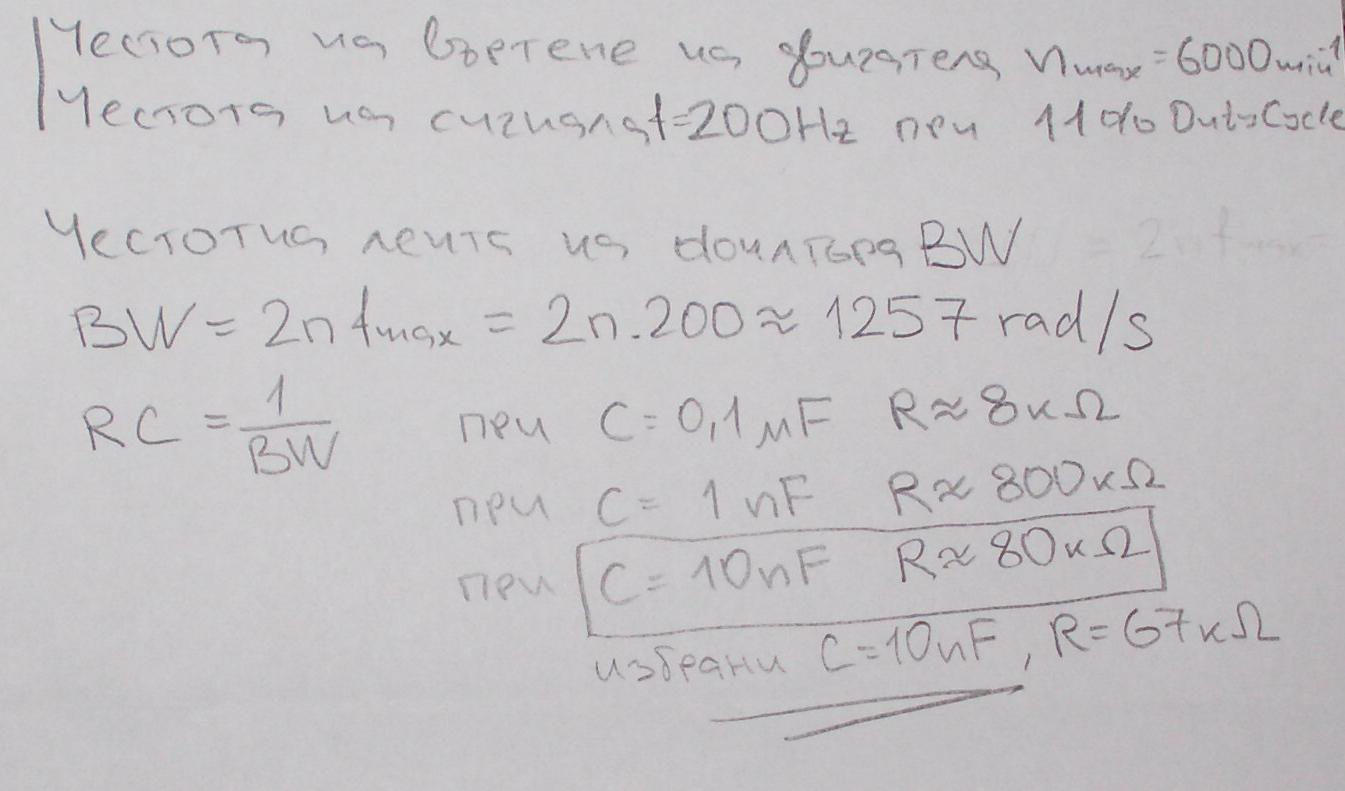 Честота на въртене на двигателя nmax = 6000 min⁻¹
Честота на сигнала f=200Hz при 11% Duty Cycle
Честотна лента на филтъра BW
BW = 2π fmax = 2π.200 ≈ 1257 rad/s
RC = 1/BW при C = 0,1 μF R ≈ 8кΩ
при C = 1 nF R ≈ 800кΩ
при C = 10nF R ≈ 80кΩ
избрани C=10nF, R=67кΩ